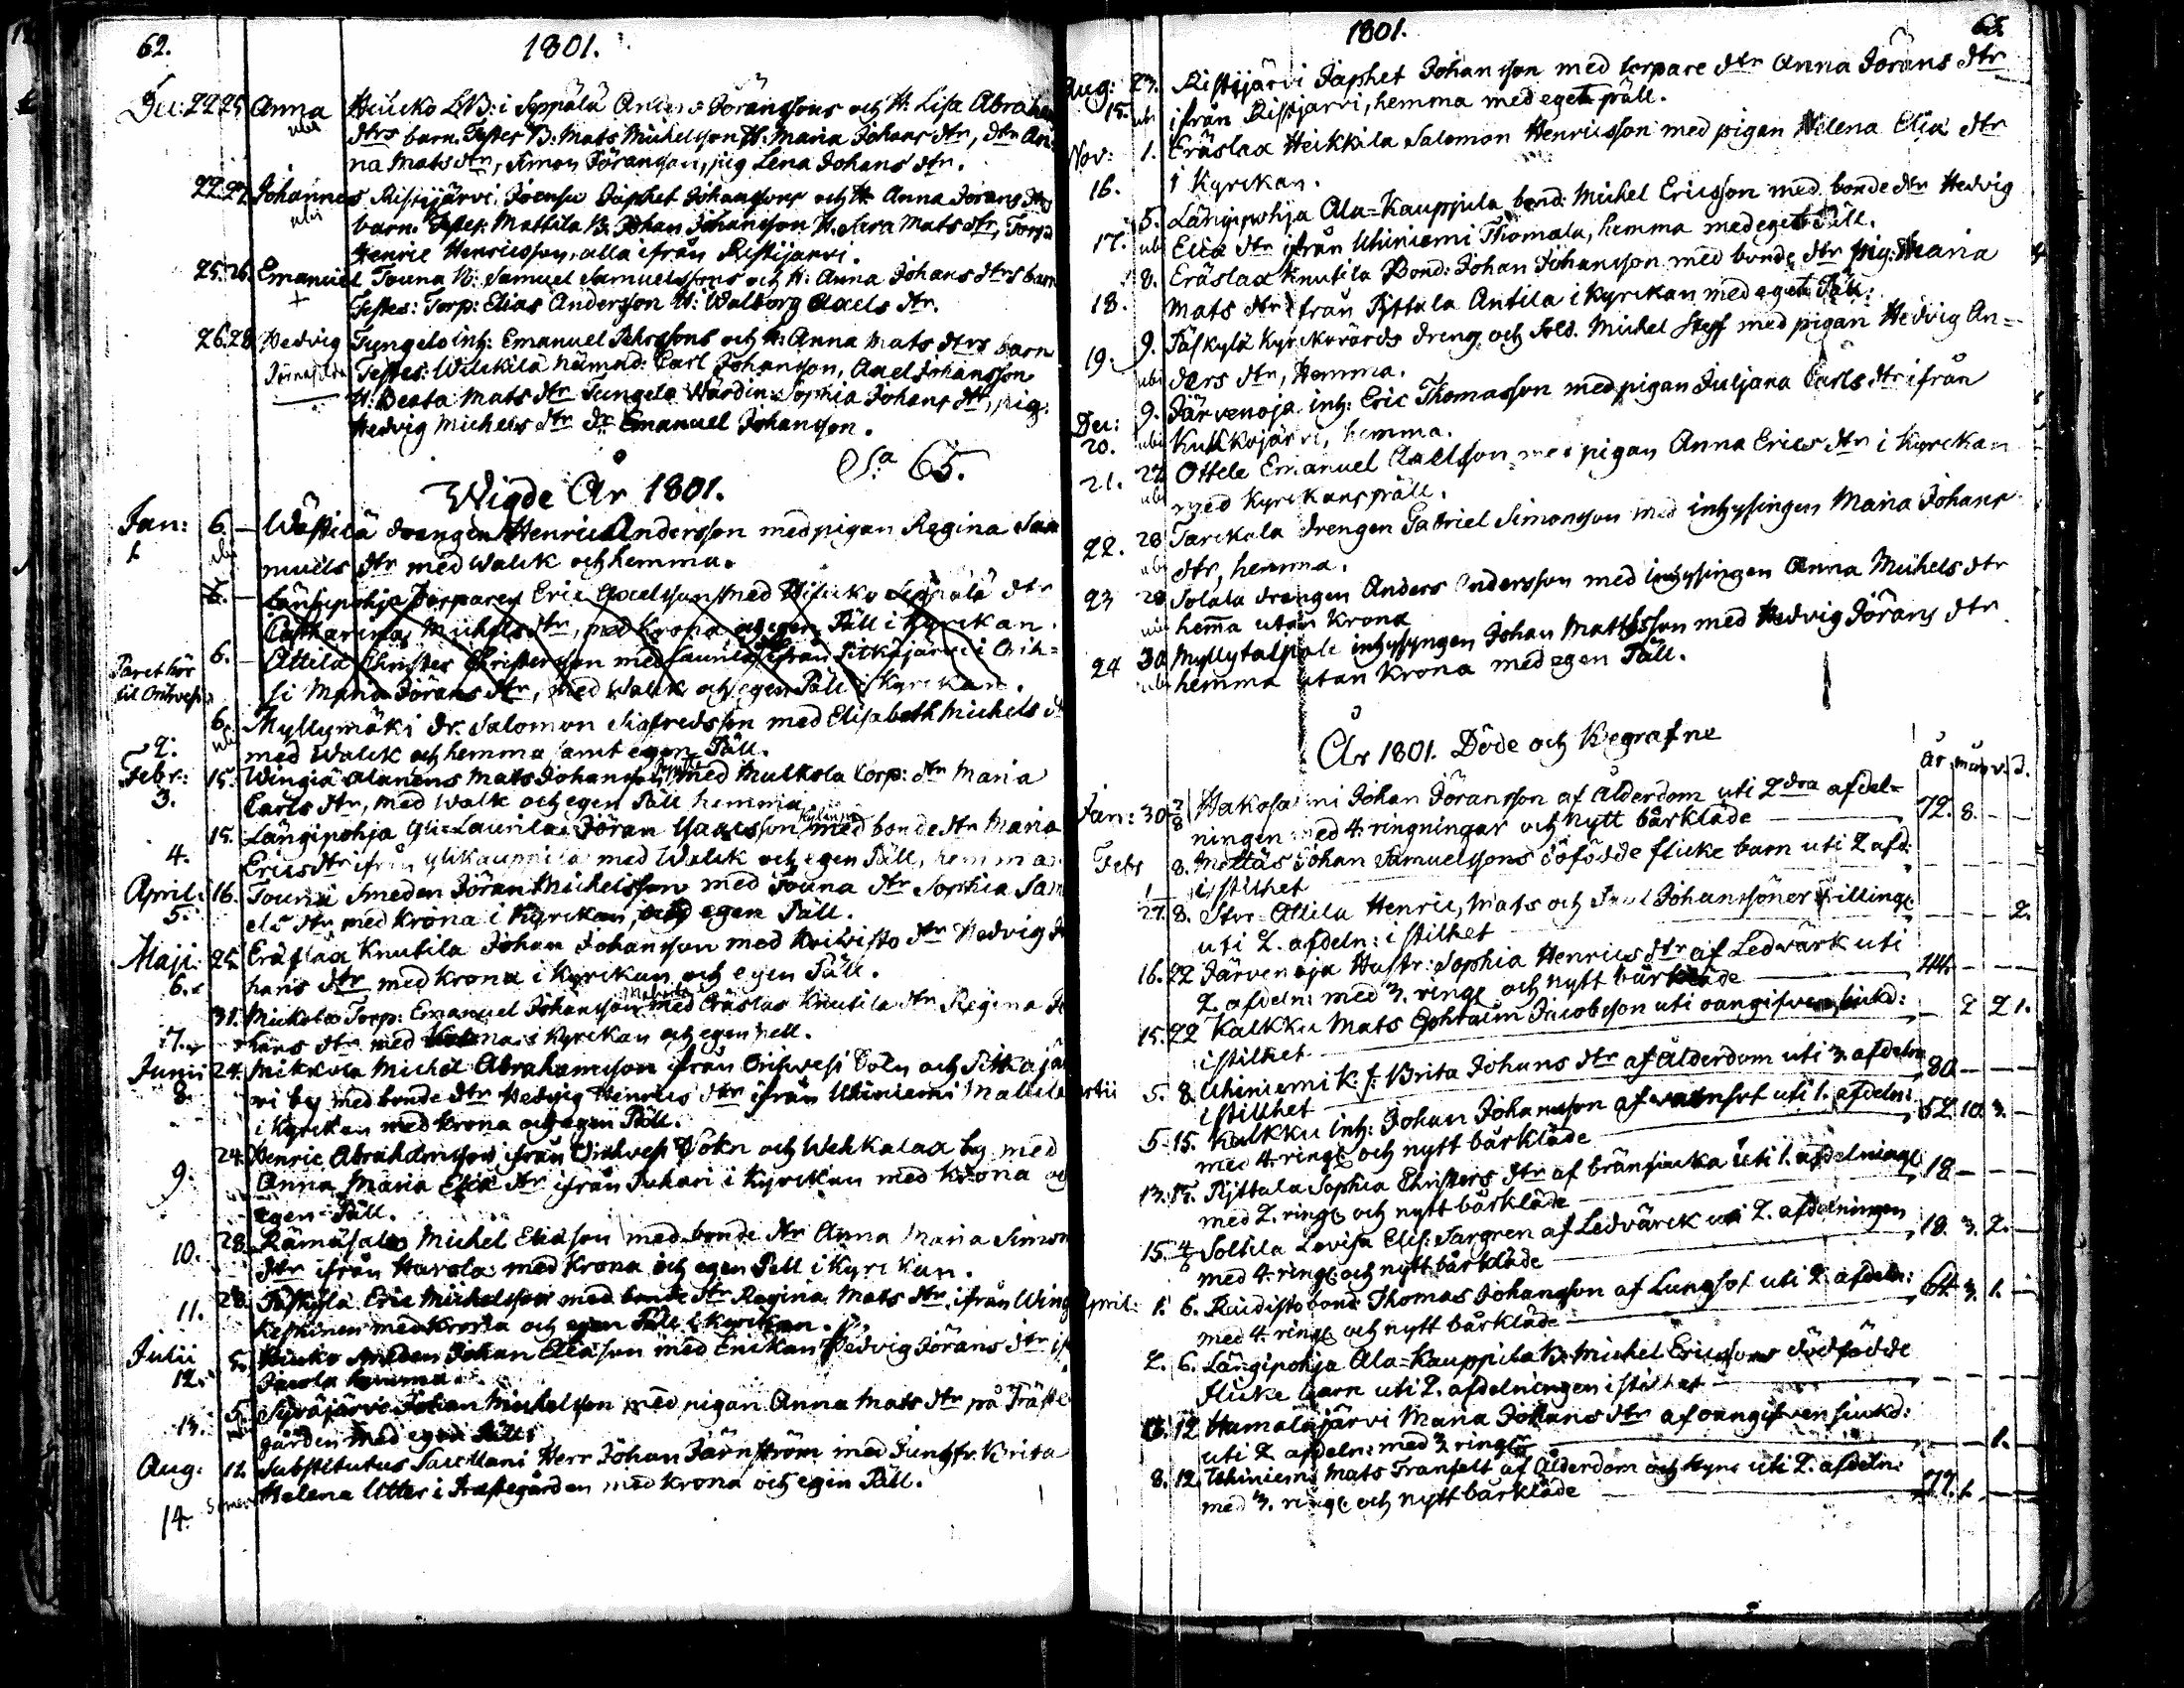 62.
1801.
Dec: 22 25 Anna Heucko LB: i Seppälä Anders Jöranssons och H: Lisa Abraham
ubi dtrs barn. Testes B: Mats Michelsson H: Maria Johans dtr, dtr An-
na Mats dtr, Simon Jöransson, pig Lena Johans dtr.
22 27 Johannes Ristijärvi Joensu Japhet Johanssons och H: Anna Jörans dtrs
ubi barn. Testes: Mattila B: Johan Johansson H. Mats dtr, Torp:
Henric Henricsson, alla ifrån Ristijärvi.
25. 26. Emanuel Jouna B: Samuel Samuelssons och H: Anna Johans dtrs barn
+ Testes: Torp: Elias Andersson H: Walborg Axels dtr.
26. 28 Hedvig Tungelo Inh: Emanuel Pehrssons och H: Anna Mats dtrs barn
Testes: Wilckilä Nämnd: Carl Johansson, Axel Johansson
H: Beata Mats dtr Tungelo Wärdin: Sophia Johans dtr, pig:
Hedvig Michels dtr dr: Emanuel Johansson.
S:a 65.
Wigde År 1801.
Jan: 6. Wästilä drängen Henric Andersson med pigan Regina Sa
1 ubi muels dtr med Walck och hemma.
6. Längipohja Torparen Eric Axelsson med Heucko Seppälä dtr
Catharina Michels dtr, med Krona och egen Päll i Kyrckan.
Paret hör 6. Attila Christer Christersson med Laurila ifrån Pitkäjärvi i Orih=
til Orihvesi si Maria Jörans dtr, med Walck och egen Päll i Kyrckan.
6. Myllymäki dr. Salomon Sigfredsson med Elisabeth Michels d
2. ubi med Walck och hemma samt egen Päll.
Febr: 15. Wingiä Alanens Mats Johansson med Mulkola Torp: dtr Maria
3. Carls dtr, med Walk och egen Päll hemma.
15. Längipohja Yli=Laurila Jöran Isacsson med bonde dtr Maria
4. Erics dtr ifrån Ylikauppila med Walck och egen Päll, hemma.
April: 16. Jouna Smeden Jöran Michelsson med Jouna dtr Sophia Sam
5. els dtr med Krona i Kyrckan, och egen Päll.
Maji: 25 Eräslax Knutila Johan Johansson med dtr Hedvig J
6. hans dtr med krona i Kyrckan och egen Päll.
31. Mickola Torp: Emanuel Johansson med Eräslax Knutila dtr Regina J
7. hans dtr med Krona i Kyrckan och egen Pell.
Junii 24. Mikkola Michel Abrahamsson ifrån Orihvesi Sokn och Pitkäjär
8. vi by med bonde dtr Hedvig Henrics dtr ifrån Uhiniemi Mattila
i Kyrckan med krona och egen Päll.
24. Henric Abrahamsson ifrån Orihvesi Sokn och Wehkalax by med
9. Anna Maria Eliæ dtr ifrån Juhari i Kyrckan med Krona och
egen Päll.
28. Rämäsalo Michel Eliæson med bonde dtr Anna Maria Simon
10. dtr ifrån Harola med Krona och egen Pell i Kyrckan.
28. Päskylä Eric Michelsson med bonde dtr Regina Mats dtr, ifrån Wing
11. Keskinen med krona och egen Päll i Kyrckan.
Julii 5. Heuko Smeden Johan Eliæson med Enckan Hedvig Jörans dtr if
12. hemma.
5. Syväjärvi Johan Michelsson med pigan Anna Mats dtr på Präste
13. gården med egen Päll.
Aug. 12. Substitutus Sacellani Herr Johan Järnström med Jungfr. Brita
14. Helena Utter i Prästegården med krona och egen Päll.
1801.
63.
Aug: 23. Ristijärvi Japhet Johansson med torpare dtr Anna Jörans dtr
15. ubi ifrån Ristijärvi, hemma med eget päll.
Nov: 1. Eräslax Heikkila Salomon Henricsson med pigan Helena Eliæ dtr
16. i Kyrckan.
5. Längipohja Ala=Kauppila bond: Michel Ericsson med bonde dtr Hedvig
17. ubi Eliæ dtr ifrån Uhiniemi Thomala, hemma med eget Päll.
8. Eräslax Knutila Bond: Johan Johansson med bonde dtr pig: Maria
18. Mats dtr ifrån Pyttala Antila i Kyrckan med eget Päll.
9. Päskylä Kyrckvärds dreng och Sold. Michel med pigan Hedvig An=
19. ubi ders dtr, Hemma.
Dec: 9. Järvenoja inh: Eric Thomasson med pigan Juliana Carls dtr ifrån
20. ubi Kukkojärvi, hemma.
21. 27 Ottele Emanuel Axelsson med pigan Anna Erics dtr i Kyrckan
ubi med Kyrckans päll.
22. 28 Tarckala drengen Gabriel Simonsson med inhysingen Maria Johans
ubi dtr, hemma.
23 28 Solala drengen Anders Andersson med inhysingen Anna Michels dtr
ubi hemma utan Krona
24 30 Myllytaipale inhysingen Johan Mattsson med Hedvig Jörans dtr
ubi hemma utan Krona med egen Päll.
År 1801. Döde och Begrafne
år mån v. d.
Jan: 30 Hakosalmi Johan Jöransson af Ålderdom uti 2dra afdel= 72. 8.
ningen med 4. ringningar och nytt bårkläde
Febr 8. Mottäs Johan Samuelssons döfödde flicke barn uti 2 afd:
1 i stillhet
27. 8. Stor=Attila Henric, Mats och Johanssöner Trilling: 2.
uti 2. afdeln: i stillhet
16. 22 Järvenoja Hustr: Sophia Henrics dtr af Ledvärk uti 44.
2. afdeln: med 3. ring: och nytt bårkläde
15. 22 Kalkku Mats Ephraim Jacobsson uti oangifven siukd: 2 21.
i stillhet
5. 8. Uhiniemi K: f: Brita Johans dtr af Ålderdom uti 3. afdeln: 80
i stillhet
5. 15. Kulkku inh: Johan Johansson af uti 1. afdeln: 52. 10. 3.
med 4. ring: och nytt bårkläde
13. 15. Pyttala Sophia Christers dtr af bränsiucka uti 1. afdelning: 18
med 2. ring: och nytt bårkläde
15. Soltila Lovisa Elis: Sargren af Ledvärck uti 2. afdelningen 18. 3. 2.
med 4. ring: och nytt bårkläde
April: 1. 6. Ruidisto bond Thomas Johansson af Lungsot uti 2. afdeln: 64 3. 1.
med 4. ring: och nytt bårkläde
2. 6. Längipohja Ala=Kauppila B: Michel Ericssons dödfödde
flicke barn uti 2. afdelningen i stillhet
12 Hamaläjärvi Maria Johans dtr af oangifven siukd: 1.
uti 2 afdeln: med 2 ring:
8. 12. Uhiniemi Mats Tranfelt af Ålderdom och uti 2. afdeln: 77. 1.
med 3. ring: och nytt bårkläde